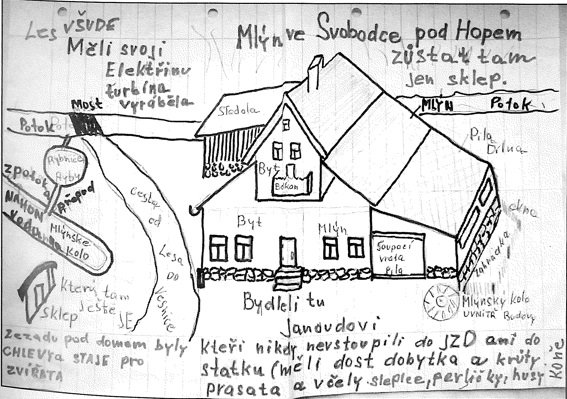 Les VŠUDE
Měli svoji
Elektřinu
turbína
vyráběla
Mlýn ve Svobodce pod Hopem
zůstat tam
jen sklep.
Most
Stodola
MLÝN Potok
Potok
Rybníce
Ryby
z potok
přepad
NÁHON
Mlýnské
Kolo
cesta
od
Lesa
Do
Vesnice
Byt
Balkon
Byt
Mlýn
Pila
Dílna
okna
zahrádka
Soupací
vrata
Pila
Mlýnský kolo
UVNITŘ Budovy
který tam
ještě
JE
sklep
Zezadu pod domem byly
CHLEVY A STAJE pro
ZVÍŘATA
Bydleli tu
Janoudovi
kteří nikdy nevstoupili do JZD ani do
statku (měli dost dobytka a krůty
prasata a včely slepice, perličky, husy
koně